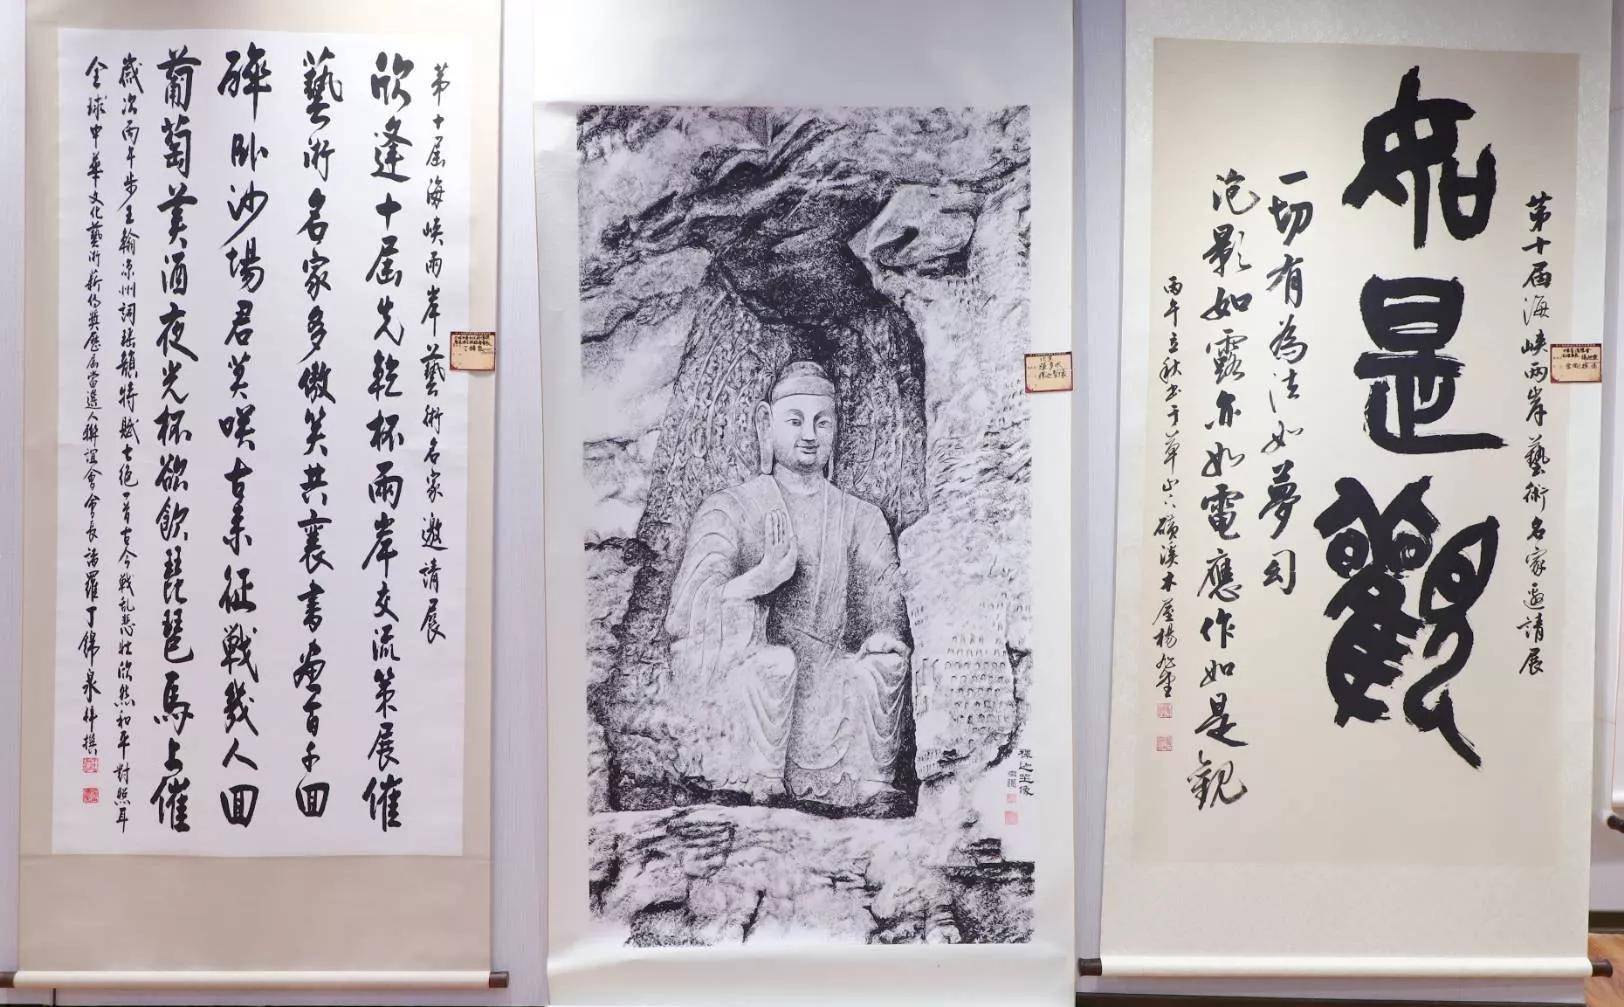 第十屆海峽兩岸藝術名家邀請展
欣逢十屆先乾杯兩岸交流策展催
藝術名家多傲笑共襄書畫百千回
醉臥沙場君莫咲古来征戰幾人回
葡萄美酒夜光杯欲飲琵琶馬上催
歲次丙午步王翰凉州詞韻特賦七绝一首古今戰乱悲壯欣然和平對照耳
全球中華文化藝術薪傳獎歷屆當選人聯誼會會長諸羅丁錦泉撰
釋迦坐像
第十屆海峽兩岸藝術名家邀請展
如是觀
一切有為法如夢幻
泡影如露亦如電應作如是觀
丙午立秋書于草山磺溪木屋楊旭堂